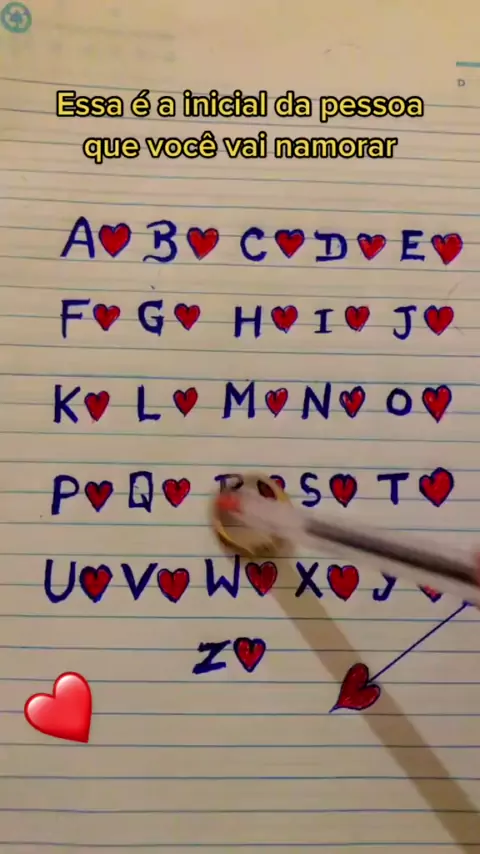 D
Essa é a inicial da pessoa
que você vai namorar
A B C D E
F G H I J
K L M N O
P Q S T
U V W X
Z